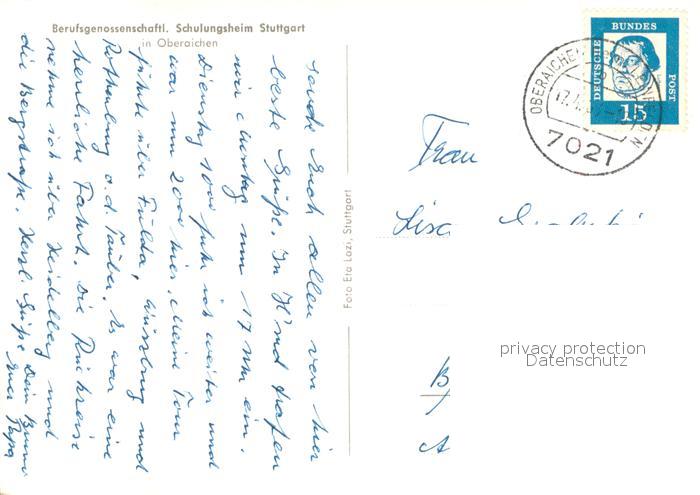 Berufsgenossenschaftl. Schulungsheim Stuttgart
in Oberaichen
sende Euch allen von hier
beste Grüße. In H' trafen
wir Montag um 17 Uhr ein.
Dienstag 10 Uhr fuhr ich weiter und
war um 20 Uhr hier. Meine Tour
führte über Fulda, Würzburg und
Rothenburg o.d. Tauber. Es war eine
herrliche Fahrt. Die Rückreise
nehme ich über Heidelberg und
die Bergstraße. Herzl. Grüße Dein
Euer Papa
Foto Eta Lazi, Stuttgart
DEUTSCHE
BUNDES
POST
15
OBERAICHEN
7021
Frau
Lisa
B
A
privacy protection
Datenschutz